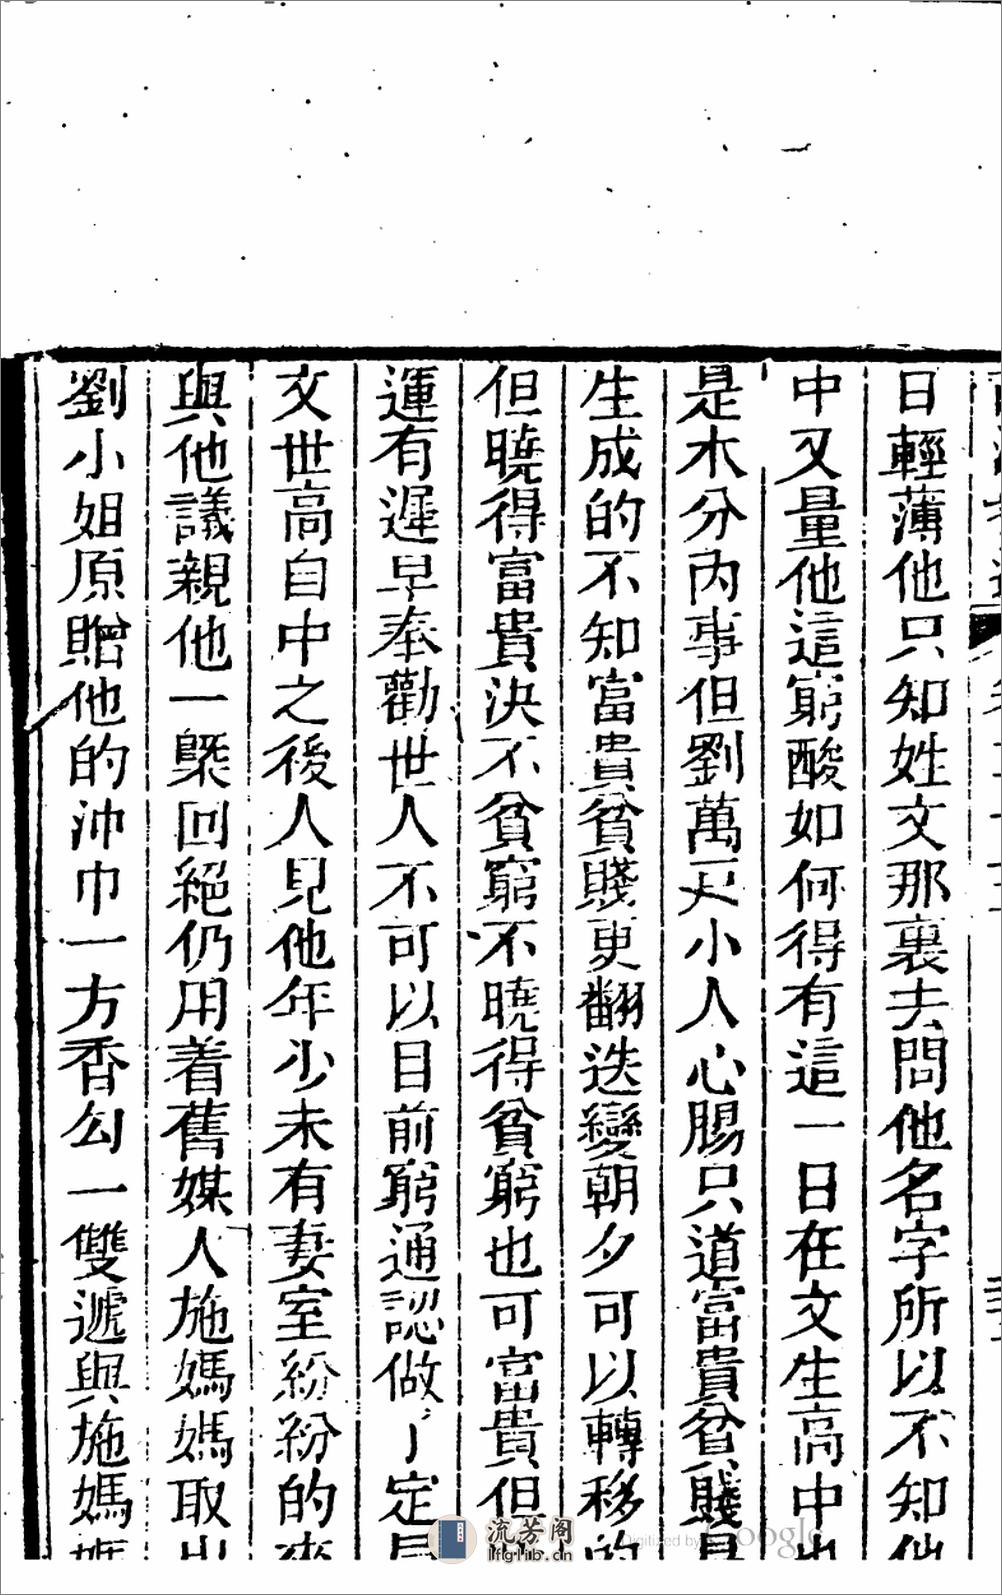 日輕薄他只知姓文那裏去問他名字所以不知他
中又量他這窮酸如何得有這一日在文生高中也
是本分內事但劉萬戶小人心腸只道富貴貧賤是
生成的不知富貴貧賤更翻迭變朝夕可以轉移的
但曉得富貴決不貧窮不曉得貧窮也可富貴但
運有遲早奉勸世人不可以目前窮通認做了定局
文世高自中之後人見他年少未有妻室紛紛的來
與他議親他一槩回絕仍用着舊媒人施媽媽取出
劉小姐原贈他的沖巾一方香勾一雙遞與施媽媽
流芳阁
lfglib.cn
Digitized by Google